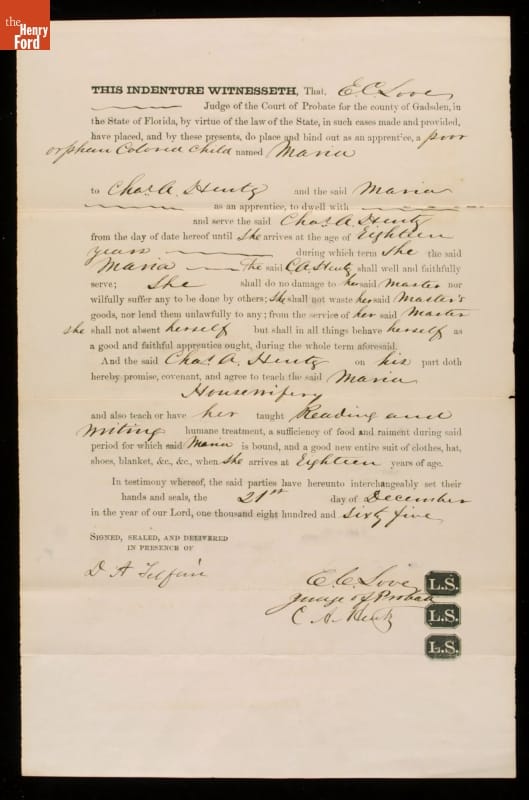 the
Henry
Ford
THIS INDENTURE WITNESSETH, That, E C Love
Judge of the Court of Probate for the county of Gadsden, in
the State of Florida, by virtue of the law of the State, in such cases made and provided,
have placed, and by these presents, do place and bind out as an apprentice, a poor
orphan Colored Child named Maria
to Chas. A. Hentz and the said Maria
as an apprentice, to dwell with
and serve the said Chas. A. Hentz
from the day of date hereof until She arrives at the age of Eighteen
years during which term She the said
Maria The said C A Hentz shall well and faithfully
serve; She shall do no damage to her said Master nor
wilfully suffer any to be done by others; She shall not waste her said Master's
goods, nor lend them unlawfully to any; from the service of her said Master
she shall not absent herself but shall in all things behave herself as
a good and faithful apprentice ought, during the whole term aforesaid.
And the said Chas. A. Hentz on his part doth
hereby promise, covenant, and agree to teach the said Maria
Housewifery
and also teach or have her taught Reading and
Writing humane treatment, a sufficiency of food and raiment during said
period for which said Maria is bound, and a good new entire suit of clothes, hat,
shoes, blanket, &c., &c., when She arrives at Eighteen years of age.
In testimony whereof, the said parties have hereunto interchangeably set their
hands and seals, the 21st day of December
in the year of our Lord, one thousand eight hundred and Sixty five
SIGNED, SEALED, AND DELIVERED
IN PRESENCE OF
D A Telfair
E. C. Love L.S.
Judge of Probate
C. A. Hentz L.S.
L.S.